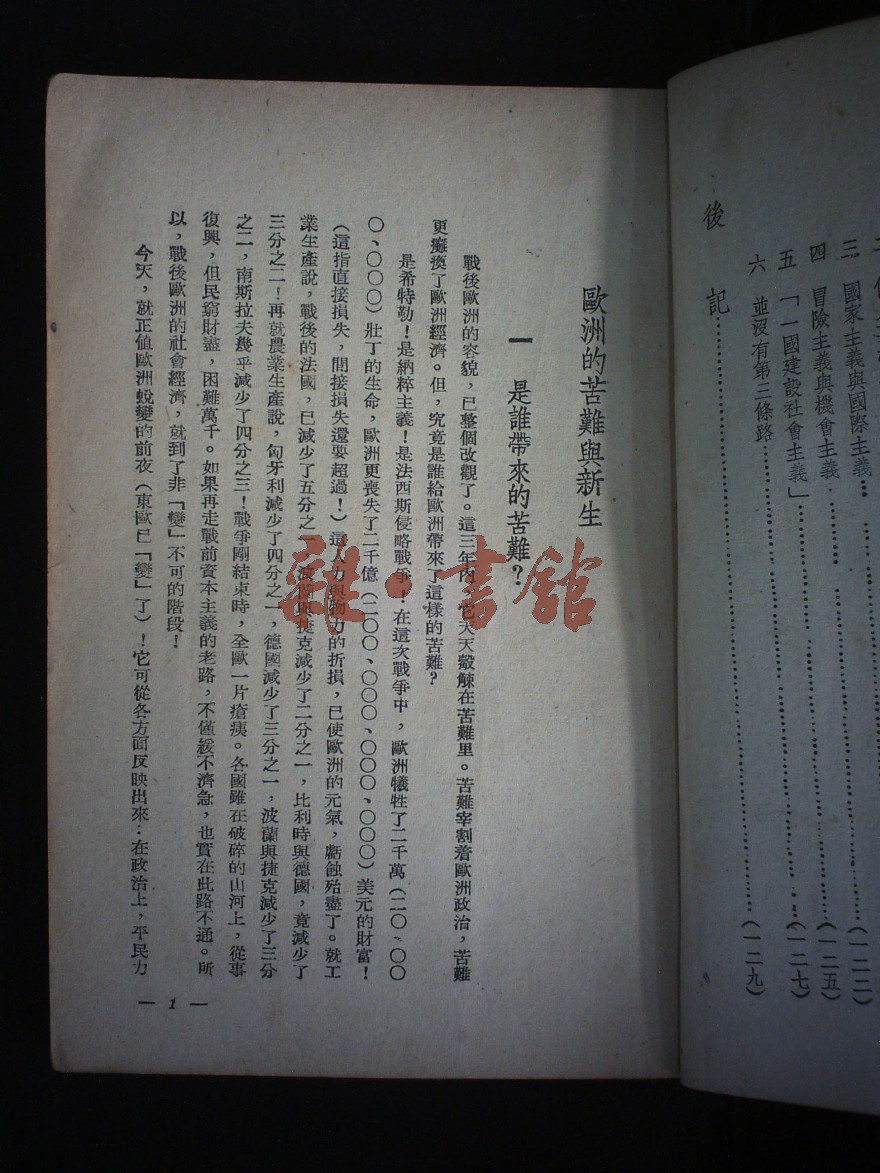 三 國家主義與國際主義……(一二二)
四 冒險主義與機會主義……(一二五)
五 「一國建設社會主義」……(一二七)
六 並沒有第三條路……(一二九)
後 記……
歐洲的苦難與新生
一 是誰帶來的苦難？
戰後歐洲的容貌，已整個改觀了。這三年內，它天天觳觫在苦難里。苦難宰割着歐洲政治，苦難
更癱瘓了歐洲經濟。但，究竟是誰給歐洲帶來了這樣的苦難？
是希特勒！是納粹主義！是法西斯侵略戰爭！在這次戰爭中，歐洲犧牲了二千萬（二〇、〇〇
〇、〇〇〇）壯丁的生命，歐洲更喪失了二千億（二〇〇、〇〇〇、〇〇〇、〇〇〇）美元的財富！
（這指直接損失，間接損失還要超過！）這人力與物力的折損，已使歐洲的元氣，虧蝕殆盡了。就工
業生產說，戰後的法國，已減少了五分之一，波蘭與捷克減少了二分之一，比利時與德國，竟減少了
三分之二！再就農業生產說，匈牙利減少了四分之一，德國減少了三分之一，波蘭與捷克減少了三分
之二，南斯拉夫幾乎減少了四分之三！戰爭剛結束時，全歐一片瘡痍。各國雖在破碎的山河上，從事
復興，但民窮財盡，困難萬千。如果再走戰前資本主義的老路，不僅緩不濟急，也實在此路不通。所
以，戰後歐洲的社會經濟，就到了非「變」不可的階段！
今天，就正値歐洲蛻變的前夜（東歐已「變」了）！它可從各方面反映出來：在政治上，平民力
— 1 —
雜·書館